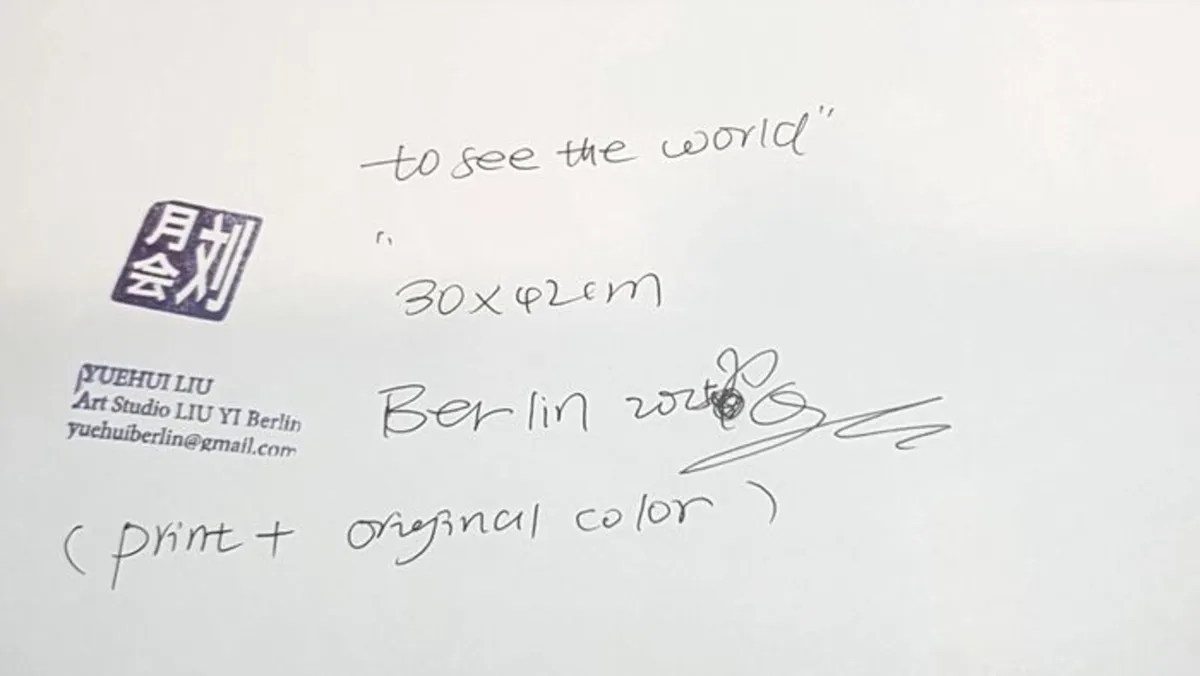 to see the world"
"
30 x 42 cm
Berlin 2025
(print + original color)
刘
月会
YUEHUI LIU
Art Studio LIU YI Berlin
yuehuiberlin@gmail.com